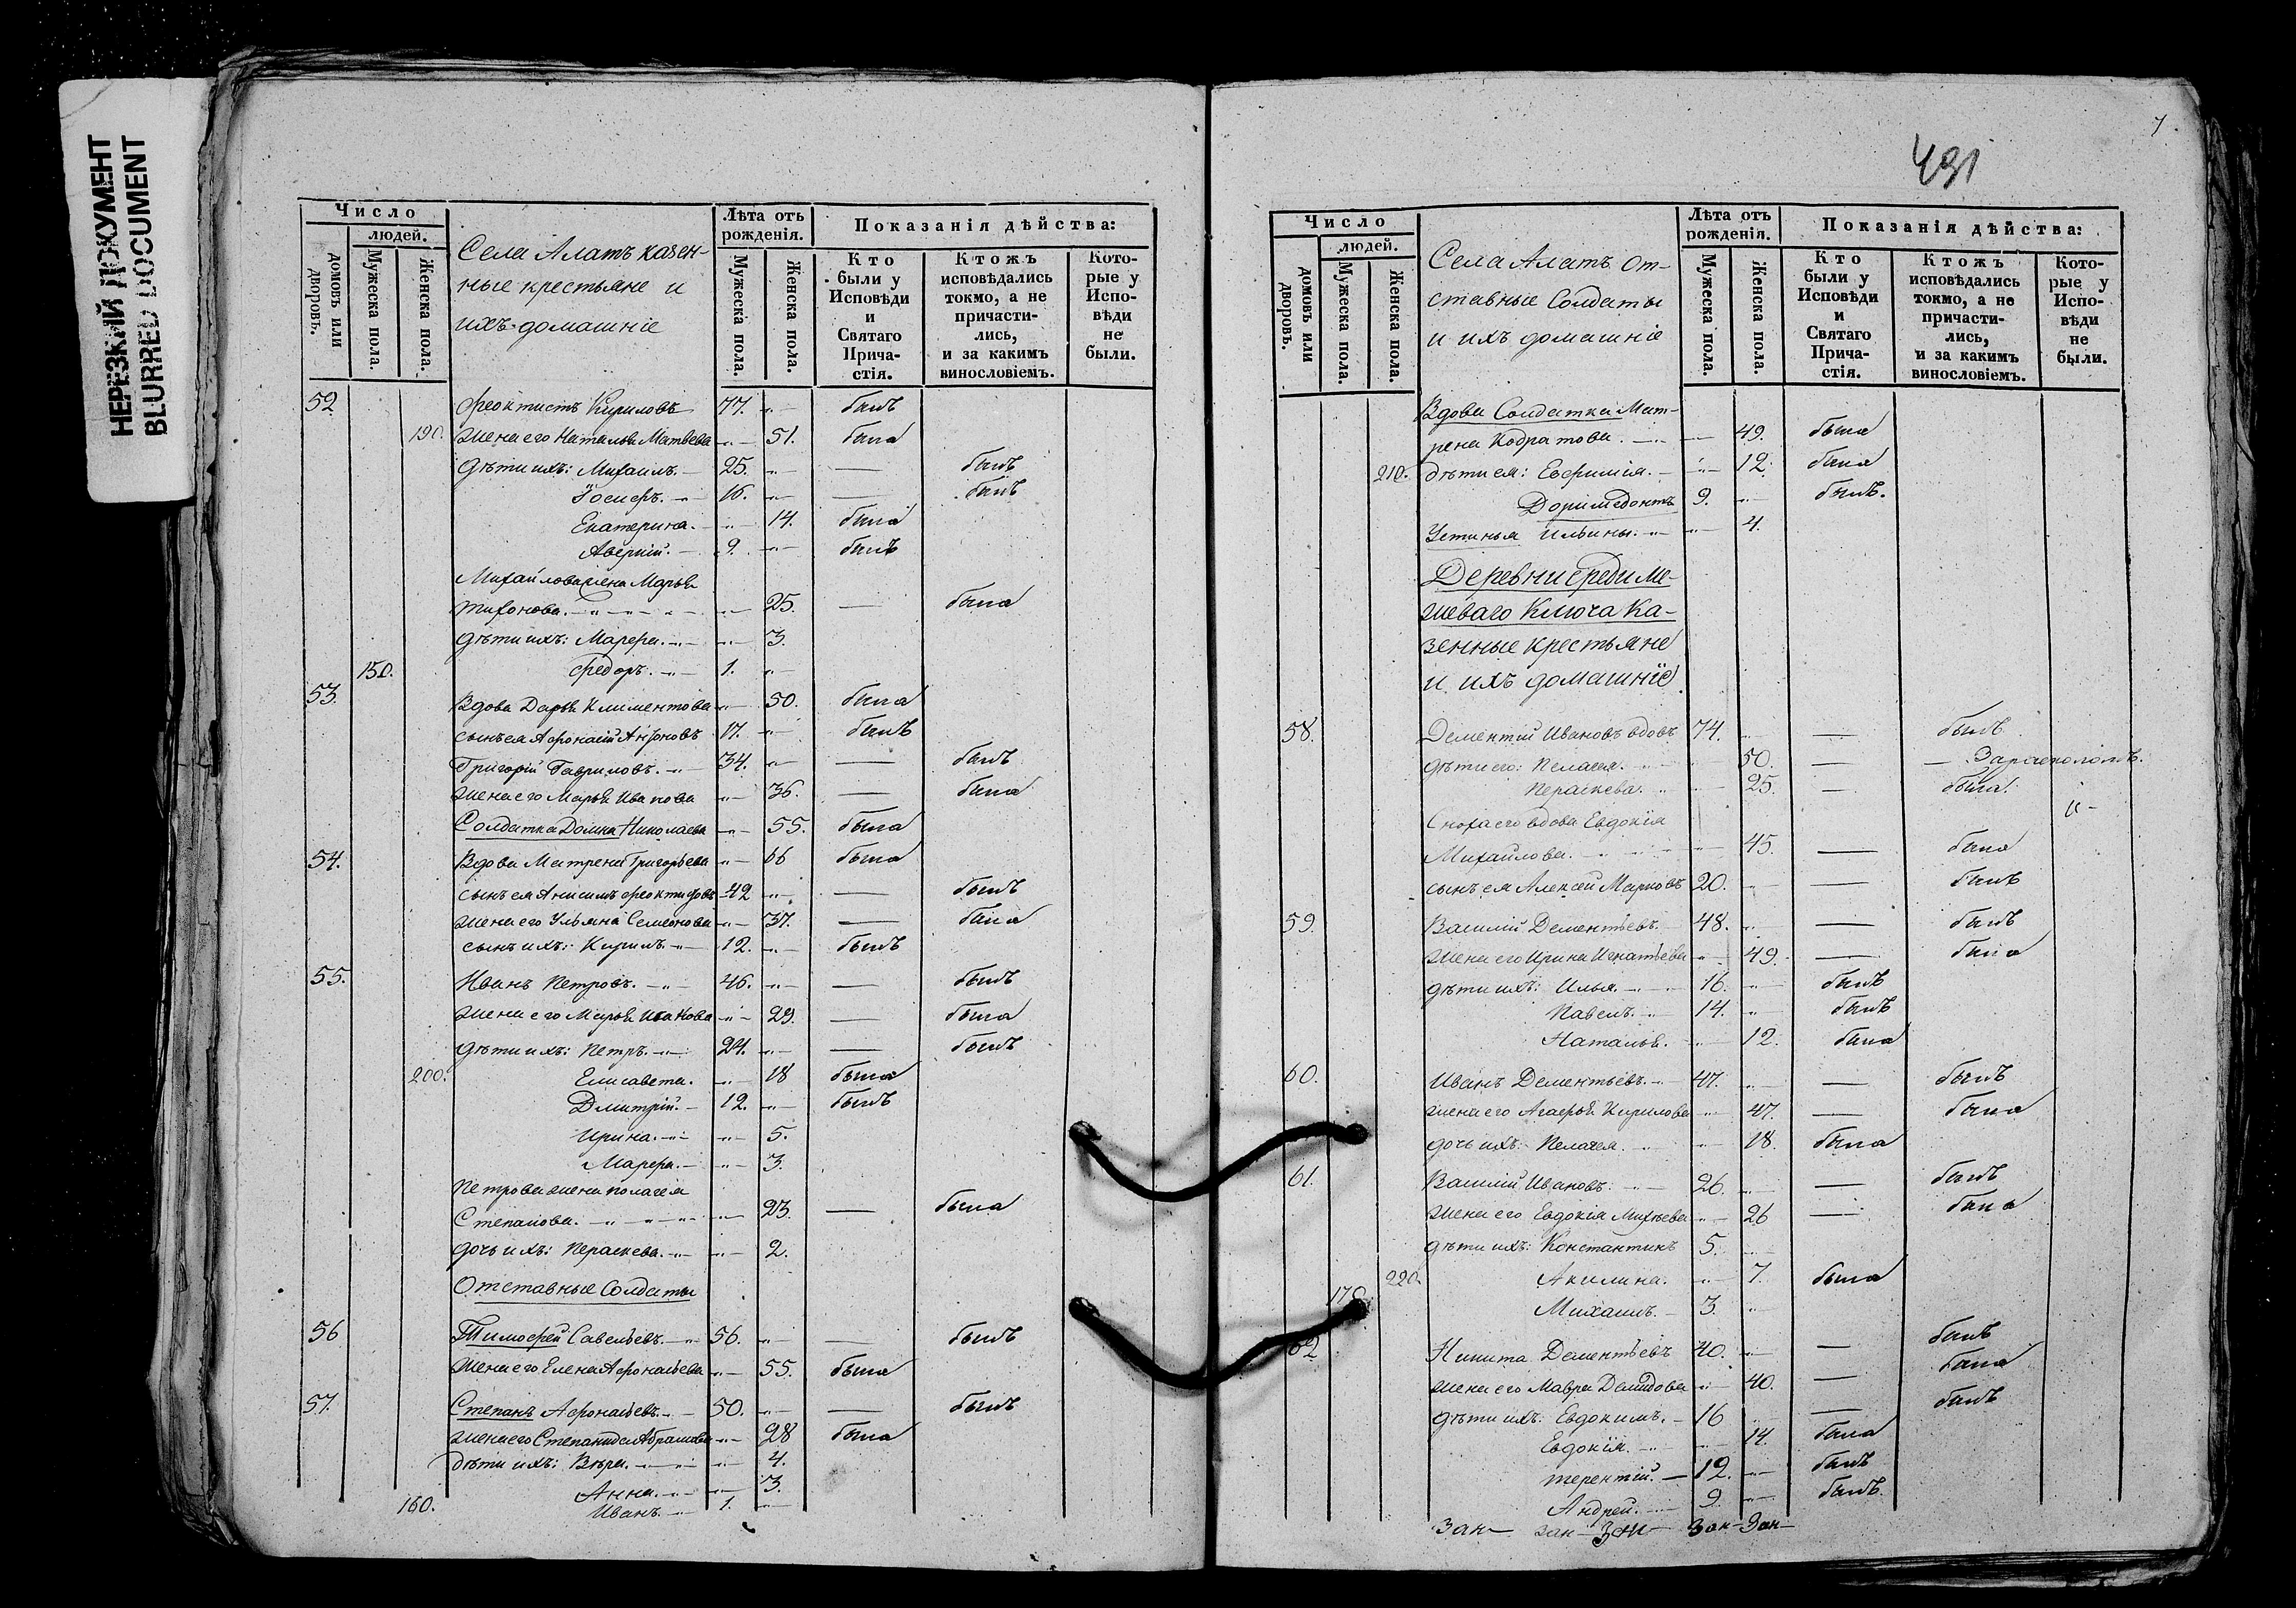 НЕРЕЗКИЙ ДОКУМЕНТ
BLURRED DOCUMENT
Число
людей.
домовъ или дворовъ.
Мужеска пола.
Женска пола.
Села Алатъ казен-
ные крестьяне и
ихъ домашніе
Лѣта отъ рожденія.
Мужеска пола.
Женска пола.
Показанія дѣйства:
Кто были у Исповѣди и Святаго Прича- стія.
Ктожъ исповѣдались токмо, а не причасти- лись, и за какимъ винословіемъ.
Кото- рые у Испо- вѣди не были.
52 Феоктистъ Кириловъ 77. былъ
190. жена его Наталья Матвеева 51. была
дѣти ихъ: Михаилъ. 25. былъ
Іосифъ. 16. былъ
Екатерина. 14. была
Аверкій. 9. былъ
Михайлова жена Марья
Тихонова. 25. была
дѣти ихъ: Марфа. 3.
150. Федоръ. 1.
53. Вдова Дарья Климентова 50. была
сынъ ея Афонасій Антоновъ 17. былъ
Григорій Гавриловъ. 34. былъ
жена его Марья Иванова 36. была
Солдатка Домна Николаева 55. была
54. Вдова Матрена Григорьева 66 была
сынъ ея Анисимъ 42 былъ
жена его Ульяна Семенова 37. была
сынъ ихъ: Кирилъ. 12. былъ
55. Иванъ Петровъ. 46. былъ
жена его Марья Иванова 29. была
дѣти ихъ: Петръ. 24. былъ
200. Елисавета. 18 была
Дмитрій. 12. былъ
Ирина. 5.
Марфа. 3.
Петрова жена Полагея
Степанова. 23. была
дочь ихъ: Параскева. 2.
Отставные Солдаты
56 Тимофей Савельевъ. 56. былъ
жена его Елена Афонасьева 55. была
57. Степанъ Афонасьевъ. 50. былъ
жена его Степанида Абрамова 28 была
дѣти ихъ: Вѣра. 4.
Анна. 3.
160. Иванъ. 1.
7.
491
Число
людей.
домовъ или дворовъ.
Мужеска пола.
Женска пола.
Села Алатъ От-
ставные Солдаты
и ихъ домашніе
Лѣта отъ рожденія.
Мужеска пола.
Женска пола.
Показанія дѣйства:
Кто были у Исповѣди и Святаго Прича- стія.
Ктожъ исповѣдались токмо, а не причасти- лись, и за какимъ винословіемъ.
Кото- рые у Испо- вѣди не были.
Вдова Солдатка Мат-
рена Кодратова. 49. была
210. дѣти ея: Евфимія. 12. была
Доримедонтъ 9. былъ.
Устинья Ильины. 4.
Деревни Среди Ме-
шеваго Ключа Ка-
зенные крестьяне
и ихъ домашніе
58. Дементій Ивановъ вдовъ 74. былъ
дѣти его: Пелагея. 50. За расколомъ.
Параскева. 25. была.
Сноха его вдова Евдокія
Михайлова. 45. была
сынъ ея Алексей Марковъ 20. былъ
59. Василій Дементьевъ. 48. былъ
жена его Ирина Игнатьева 49. была
дѣти ихъ: Илья. 16. былъ
Павелъ. 14. былъ
Наталья. 12. была
60. Иванъ Дементьевъ. 47. былъ
жена его Агафья Кирилова 47. была
дочь ихъ: Пелагея. 18. была
61. Василій Ивановъ. 26. былъ
жена его Евдокія Михеева 26 была
дѣти ихъ: Константинъ 5.
220. Акилина. 7. была
170. Михаилъ. 3.
62 Никита Дементьевъ 40. былъ
жена его Мавра Демидова 40. была
дѣти ихъ: Евдокимъ. 16 былъ
Евдокія. 14. была
Терентій. 12. былъ
Андрей. 9 былъ.
Зак— зак— Зак— Зак— Зак—